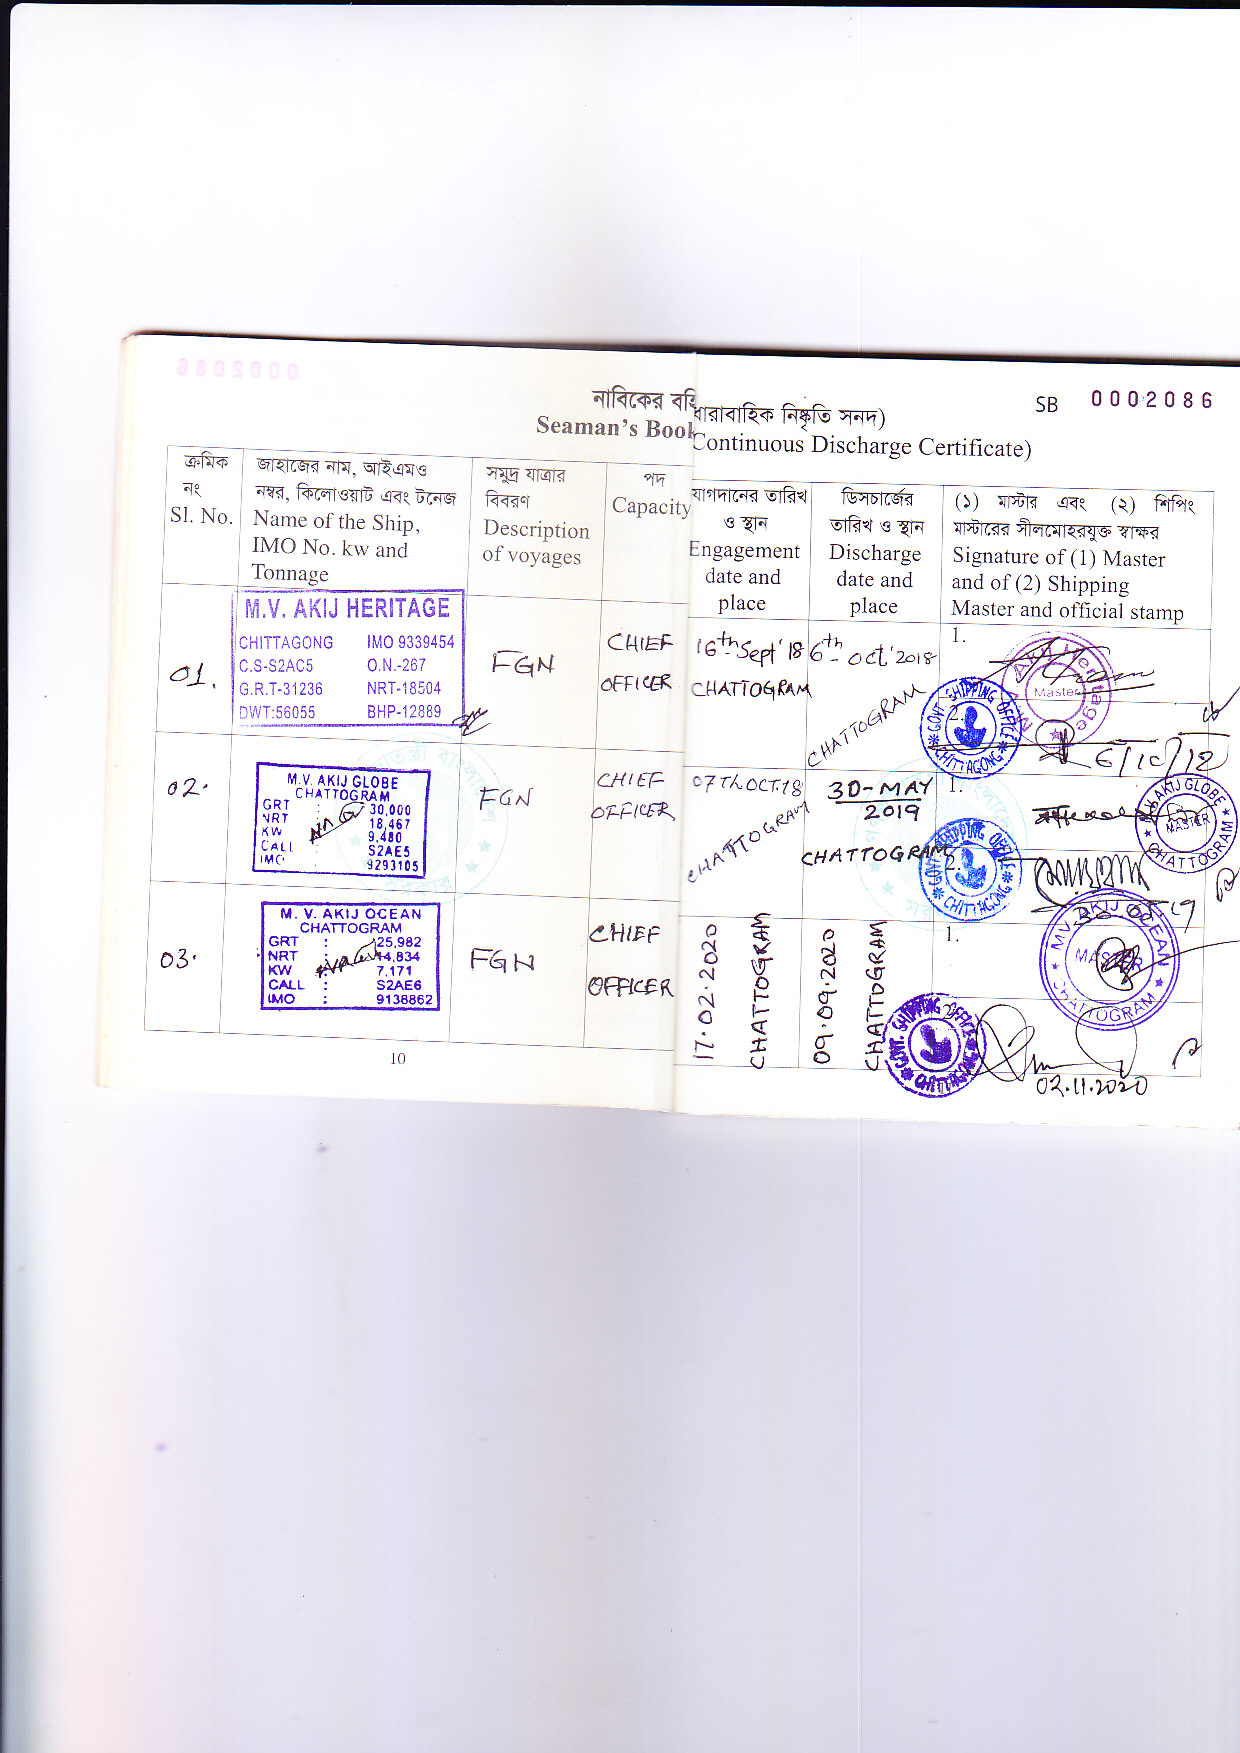 নাবিকের বহি
ধারাবাহিক নিষ্কৃতি সনদ)
SB 0002086
Seaman's Book
Continuous Discharge Certificate)
ক্রমিক
নং
Sl. No.
জাহাজের নাম, আইএমও
নম্বর, কিলোওয়াট এবং টনেজ
Name of the Ship,
IMO No. kw and
Tonnage
সমুদ্র যাত্রার
বিবরণ
Description
of voyages
পদ
Capacity
যাগদানের তারিখ
ও স্থান
Engagement
date and
place
ডিসচার্জের
তারিখ ও স্থান
Discharge
date and
place
(১) মাস্টার এবং (২) শিপিং
মাস্টারের সীলমোহরযুক্ত স্বাক্ষর
Signature of (1) Master
and of (2) Shipping
Master and official stamp
01.
M.V. AKIJ HERITAGE
CHITTAGONG IMO 9339454
C.S-S2AC5 O.N.-267
G.R.T-31236 NRT-18504
DWT:56055 BHP-12889
FGN
CHIEF
OFFICER
16th Sept'18
CHATTOGRAM
6th Oct'2018
CHATTOGRAM
1.
M.V. Akij Heritage
Master
2.
GOVT. SHIPPING OFFICE
CHITTAGONG
02.
M.V. AKIJ GLOBE
CHATTOGRAM
GRT : 30,000
NRT 18,467
KW 9,480
CALL S2AE5
IMO 9293105
FGN
CHIEF
OFFICER
07th OCT.18
CHATTOGRAM
30-MAY
2019
CHATTOGRAM
1.
M.V. AKIJ GLOBE
MASTER
CHATTOGRAM
2.
GOVT. SHIPPING OFFICE
CHITTAGONG
03.
M. V. AKIJ OCEAN
CHATTOGRAM
GRT : 25,982
NRT : 14,834
KW : 7,171
CALL : S2AE6
IMO : 9138862
FGN
CHIEF
OFFICER
17.02.2020
CHATTOGRAM
09.09.2020
CHATTOGRAM
1.
MV. AKIJ OCEAN
MASTER
CHATTOGRAM
GOVT. SHIPPING OFFICE
CHITTAGONG
02.11.2020
10